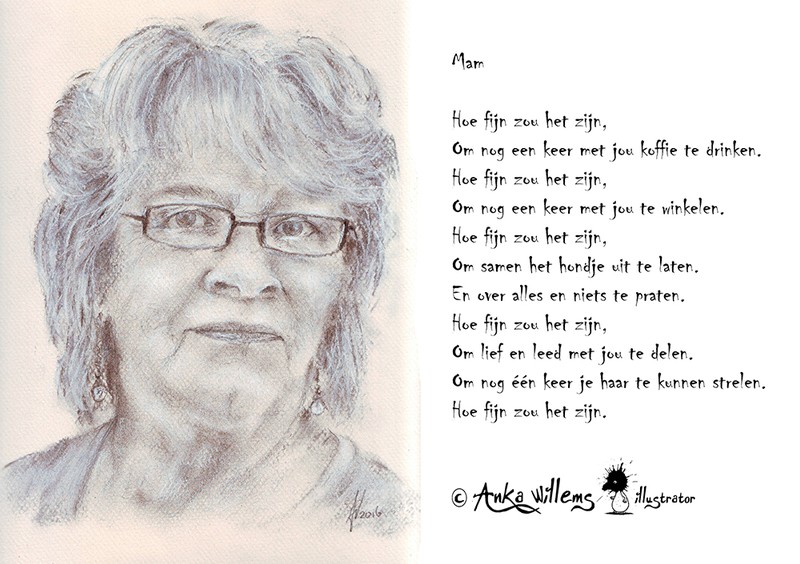 Mam
Hoe fijn zou het zijn,
Om nog een keer met jou koffie te drinken.
Hoe fijn zou het zijn,
Om nog een keer met jou te winkelen.
Hoe fijn zou het zijn,
Om samen het hondje uit te laten.
En over alles en niets te praten.
Hoe fijn zou het zijn,
Om lief en leed met jou te delen.
Om nog één keer je haar te kunnen strelen.
Hoe fijn zou het zijn.
© Anka Willems illustrator
2016